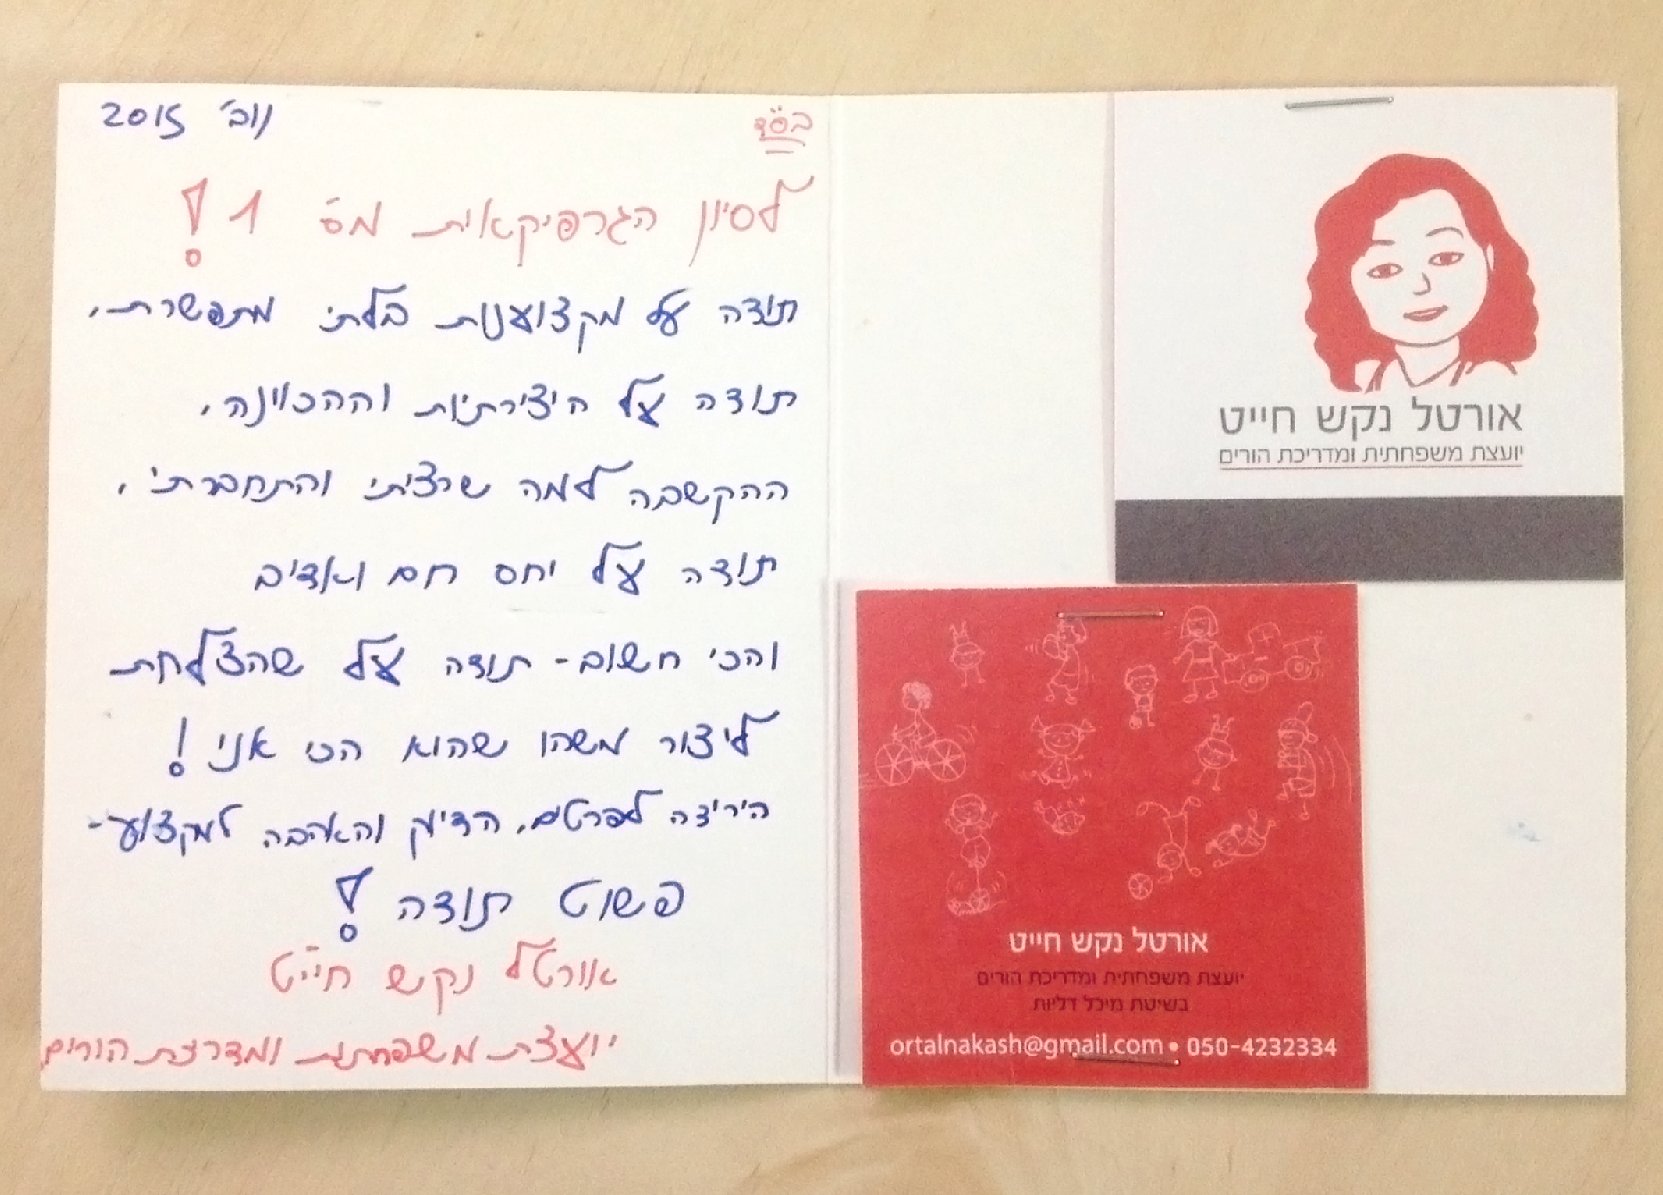 בס"ד
נוב׳ 2015
לסיון הגרפיקאית מס׳ 1!
תודה על מקצוענות בלתי מתפשרת,
תודה על היצירתיות וההכוונה,
ההקשבה למה שרציתי והתחברתי,
תודה על יחס חם ואדיב
והכי חשוב - תודה על שהצלחת
ליצור משהו שהוא הכי אני!
הירידה לפרטים, הדיוק והאהבה למקצוע -
פשוט תודה!
אורטל נקש חייט
יועצת משפחתית ומדריכת הורים
אורטל נקש חייט
יועצת משפחתית ומדריכת הורים
אורטל נקש חייט
יועצת משפחתית ומדריכת הורים
בשיטת מיכל דליות
ortalnakash@gmail.com • 050-4232334